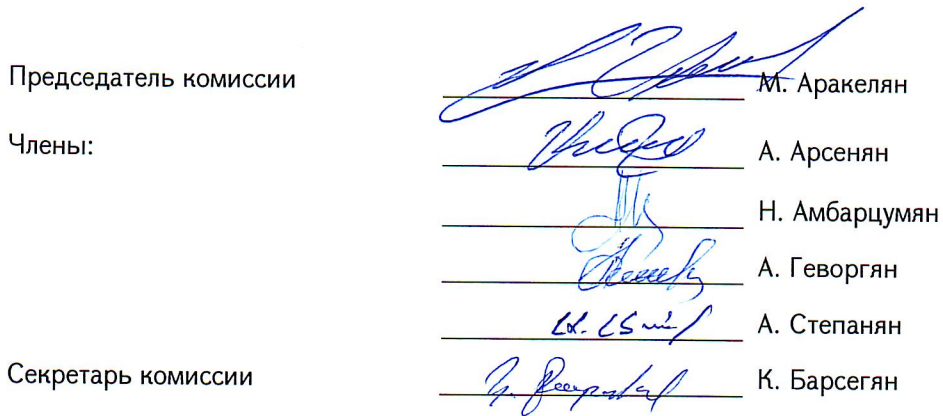 Председатель комиссии М. Аракелян
Члены: А. Арсенян
Н. Амбарцумян
А. Геворгян
А. Степанян
Секретарь комиссии К. Барсегян